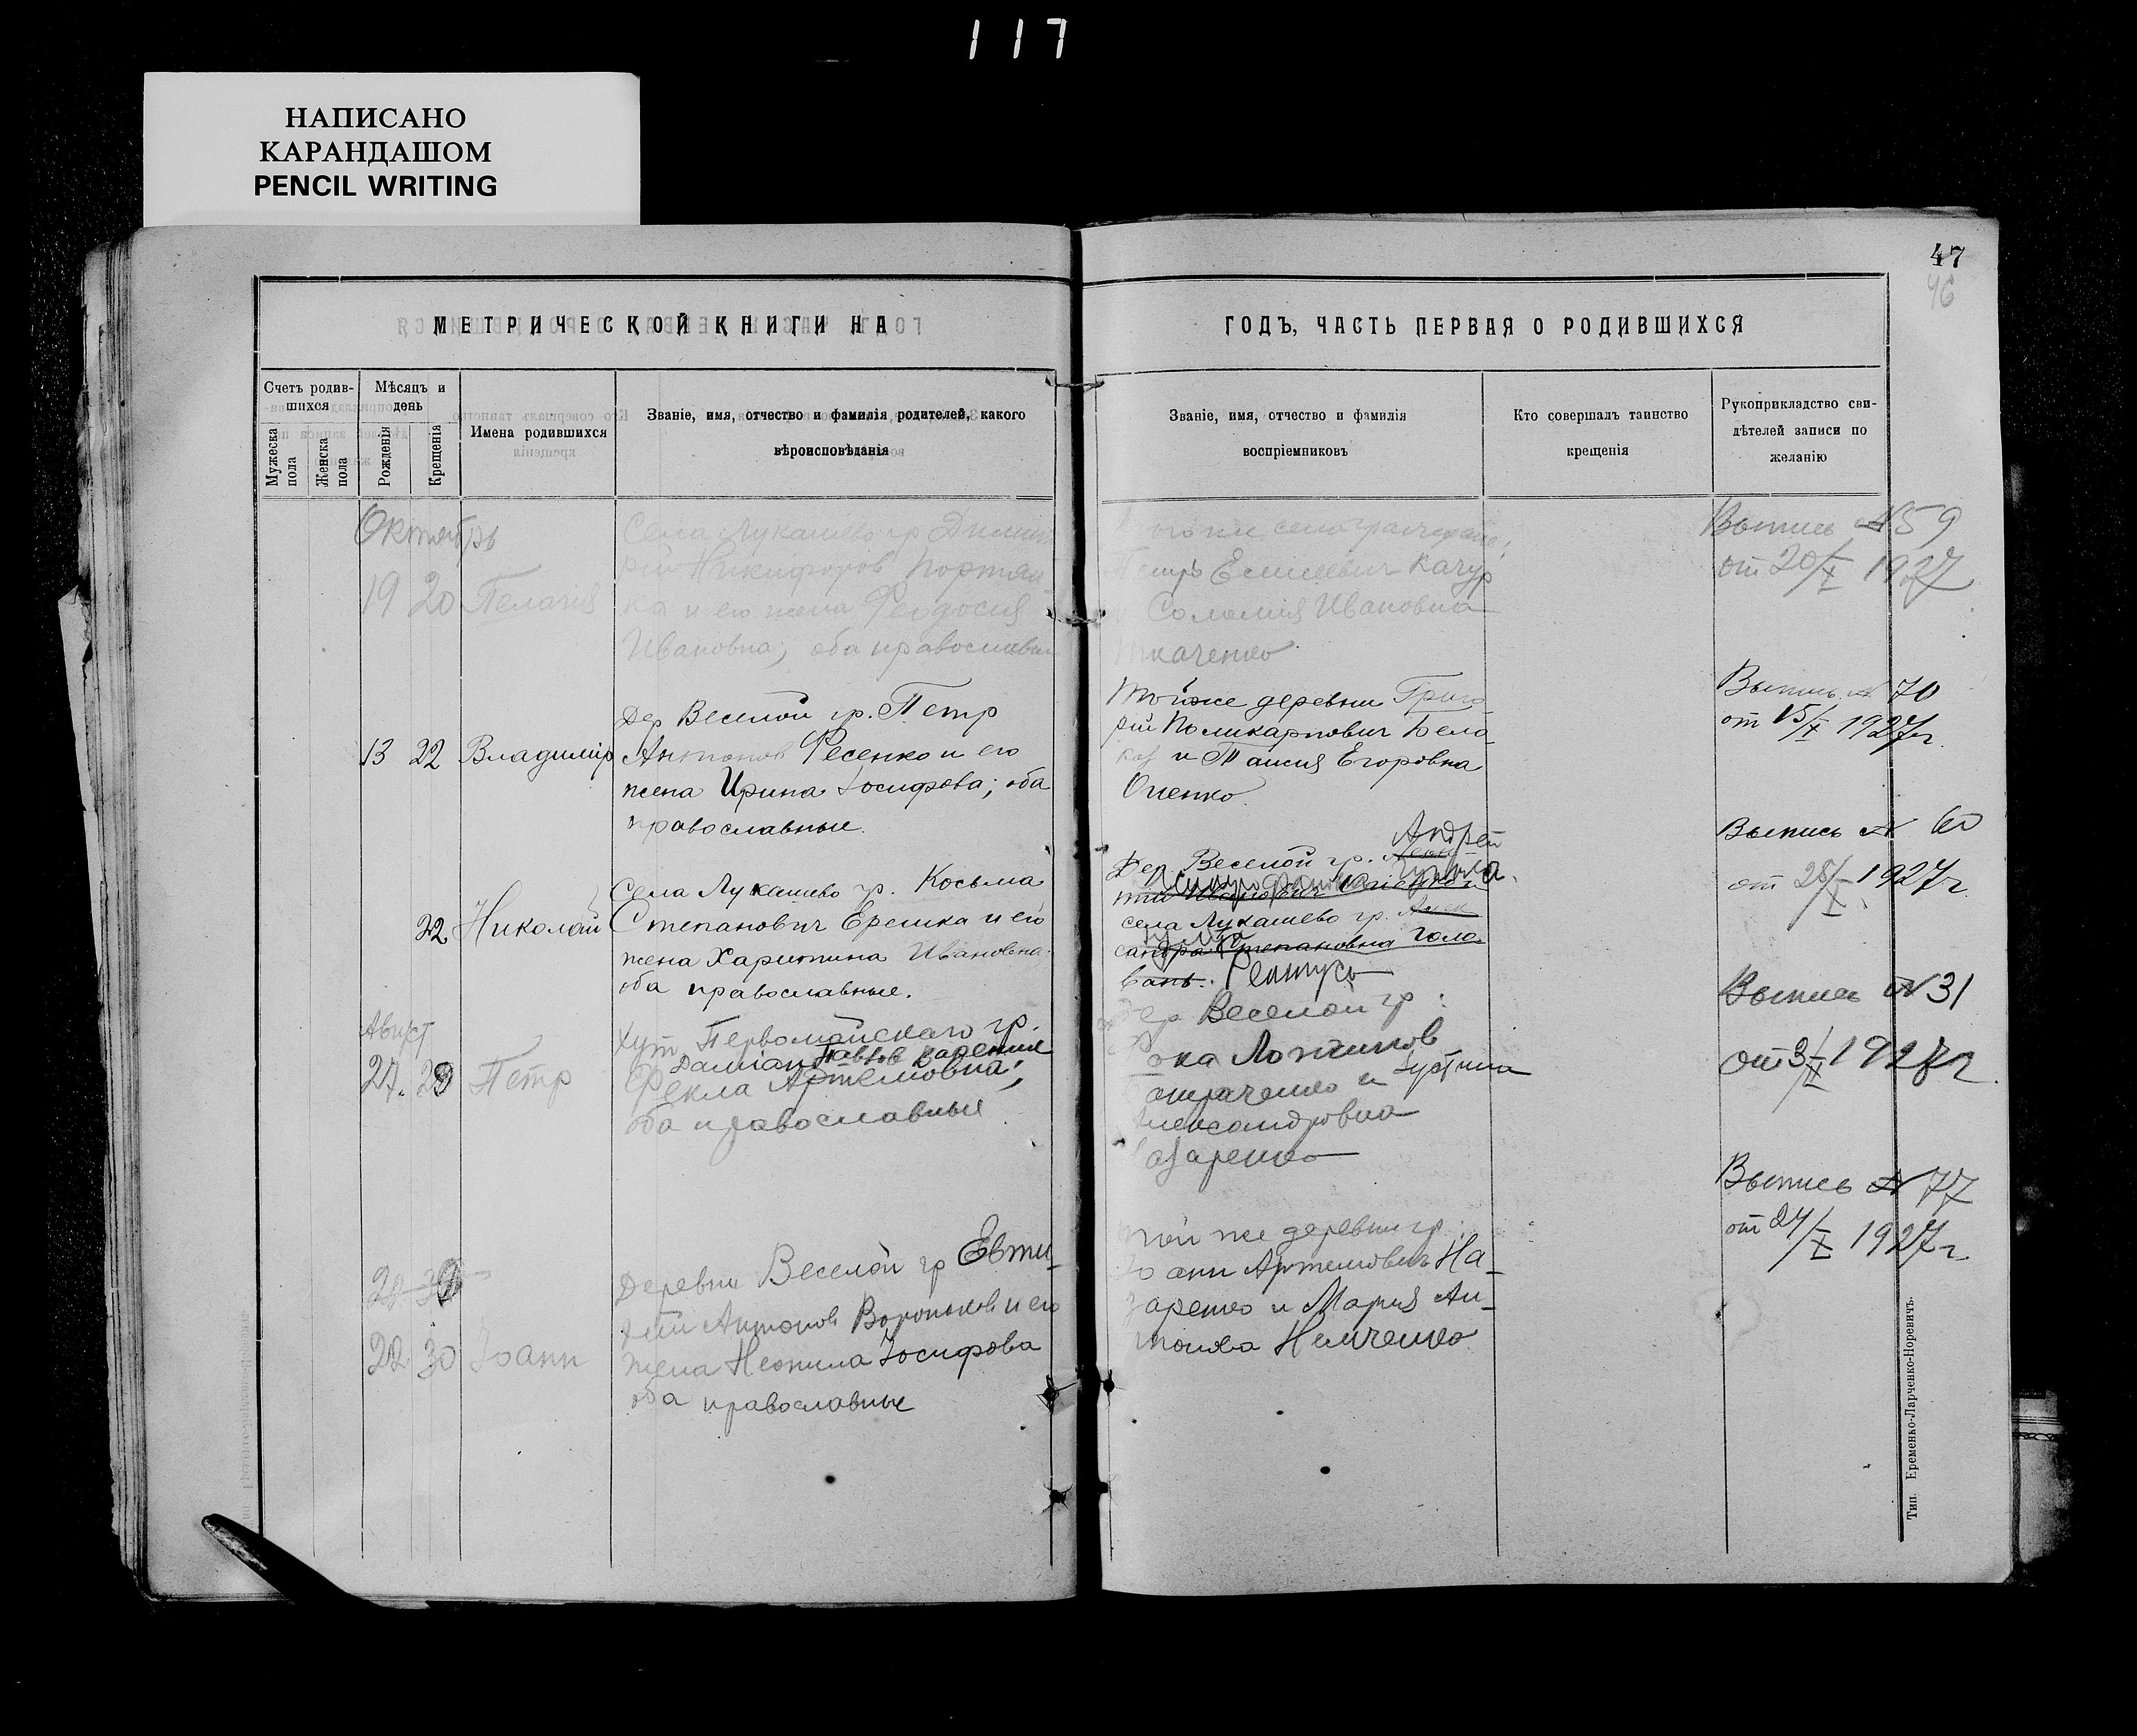 117
НАПИСАНО
КАРАНДАШОМ
PENCIL WRITING
47
46
МЕТРИЧЕСКОЙ КНИГИ НА
ГОДЪ, ЧАСТЬ ПЕРВАЯ О РОДИВШИХСЯ
Счетъ родив-
шихся
Мужеска пола
Женска пола
Мѣсяцъ и
день
Рожденія
Крещенія
Имена родившихся
Званіе, имя, отчество и фамилія родителей, какого
вѣроисповѣданія
Званіе, имя, отчество и фамилія
воспріемниковъ
Кто совершалъ таинство
крещенія
Рукоприкладство сви-
дѣтелей записи по
желанію
Октябрь
19 20 Пелагия
Села Лукашево гр Димит
рій Никифоров Портян
ка и его жена Феодосия
Ивановна; оба православн
села граждане;
Петръ Елисеевич Качур
Соломия Ивановна
Ткаченко
Выпись № 59
от 20/X 1927
13 22 Владимір
Дер Веселой гр. Петр
Антонов Фесенко и его
жена Ирина Іосифова; оба
православные.
Той же деревни Григо
рій Поликарпович Бела
и Таисия Егоровна
Оненко.
Выпись № 70
от 15/X 1927г.
22 Николай
Села Лукашево гр. Косьма
Степанович Ерешка и его
жена Харитина Ивановна;
оба православные.
Андрей
Дер. Веселой гр.
села Лукашево гр. Алек
сандра Степановна Голо
вань.
Выпись № 60
от 28/X 1927г.
Август
27. 29 Петр
Хут Первомайскаго гр.
Damian Павлов
Фекла Артемовна;
оба православные
Дер Веселой гр.
Александровна
Назаренко
Выпись № 31
от 3/X 1927г.
22 30 Іоанн
Деревни Веселой гр Евти
хій Антонов Вороньков и его
жена Неонила Іосифова
оба православные
Той же деревни гр.
Іоанн Артемович На-
заренко и Мария Ан-
тонова Немченко
Выпись № 77
от 24/X 1927г.
Тип. Еременко-Ларченко-Норевичъ.